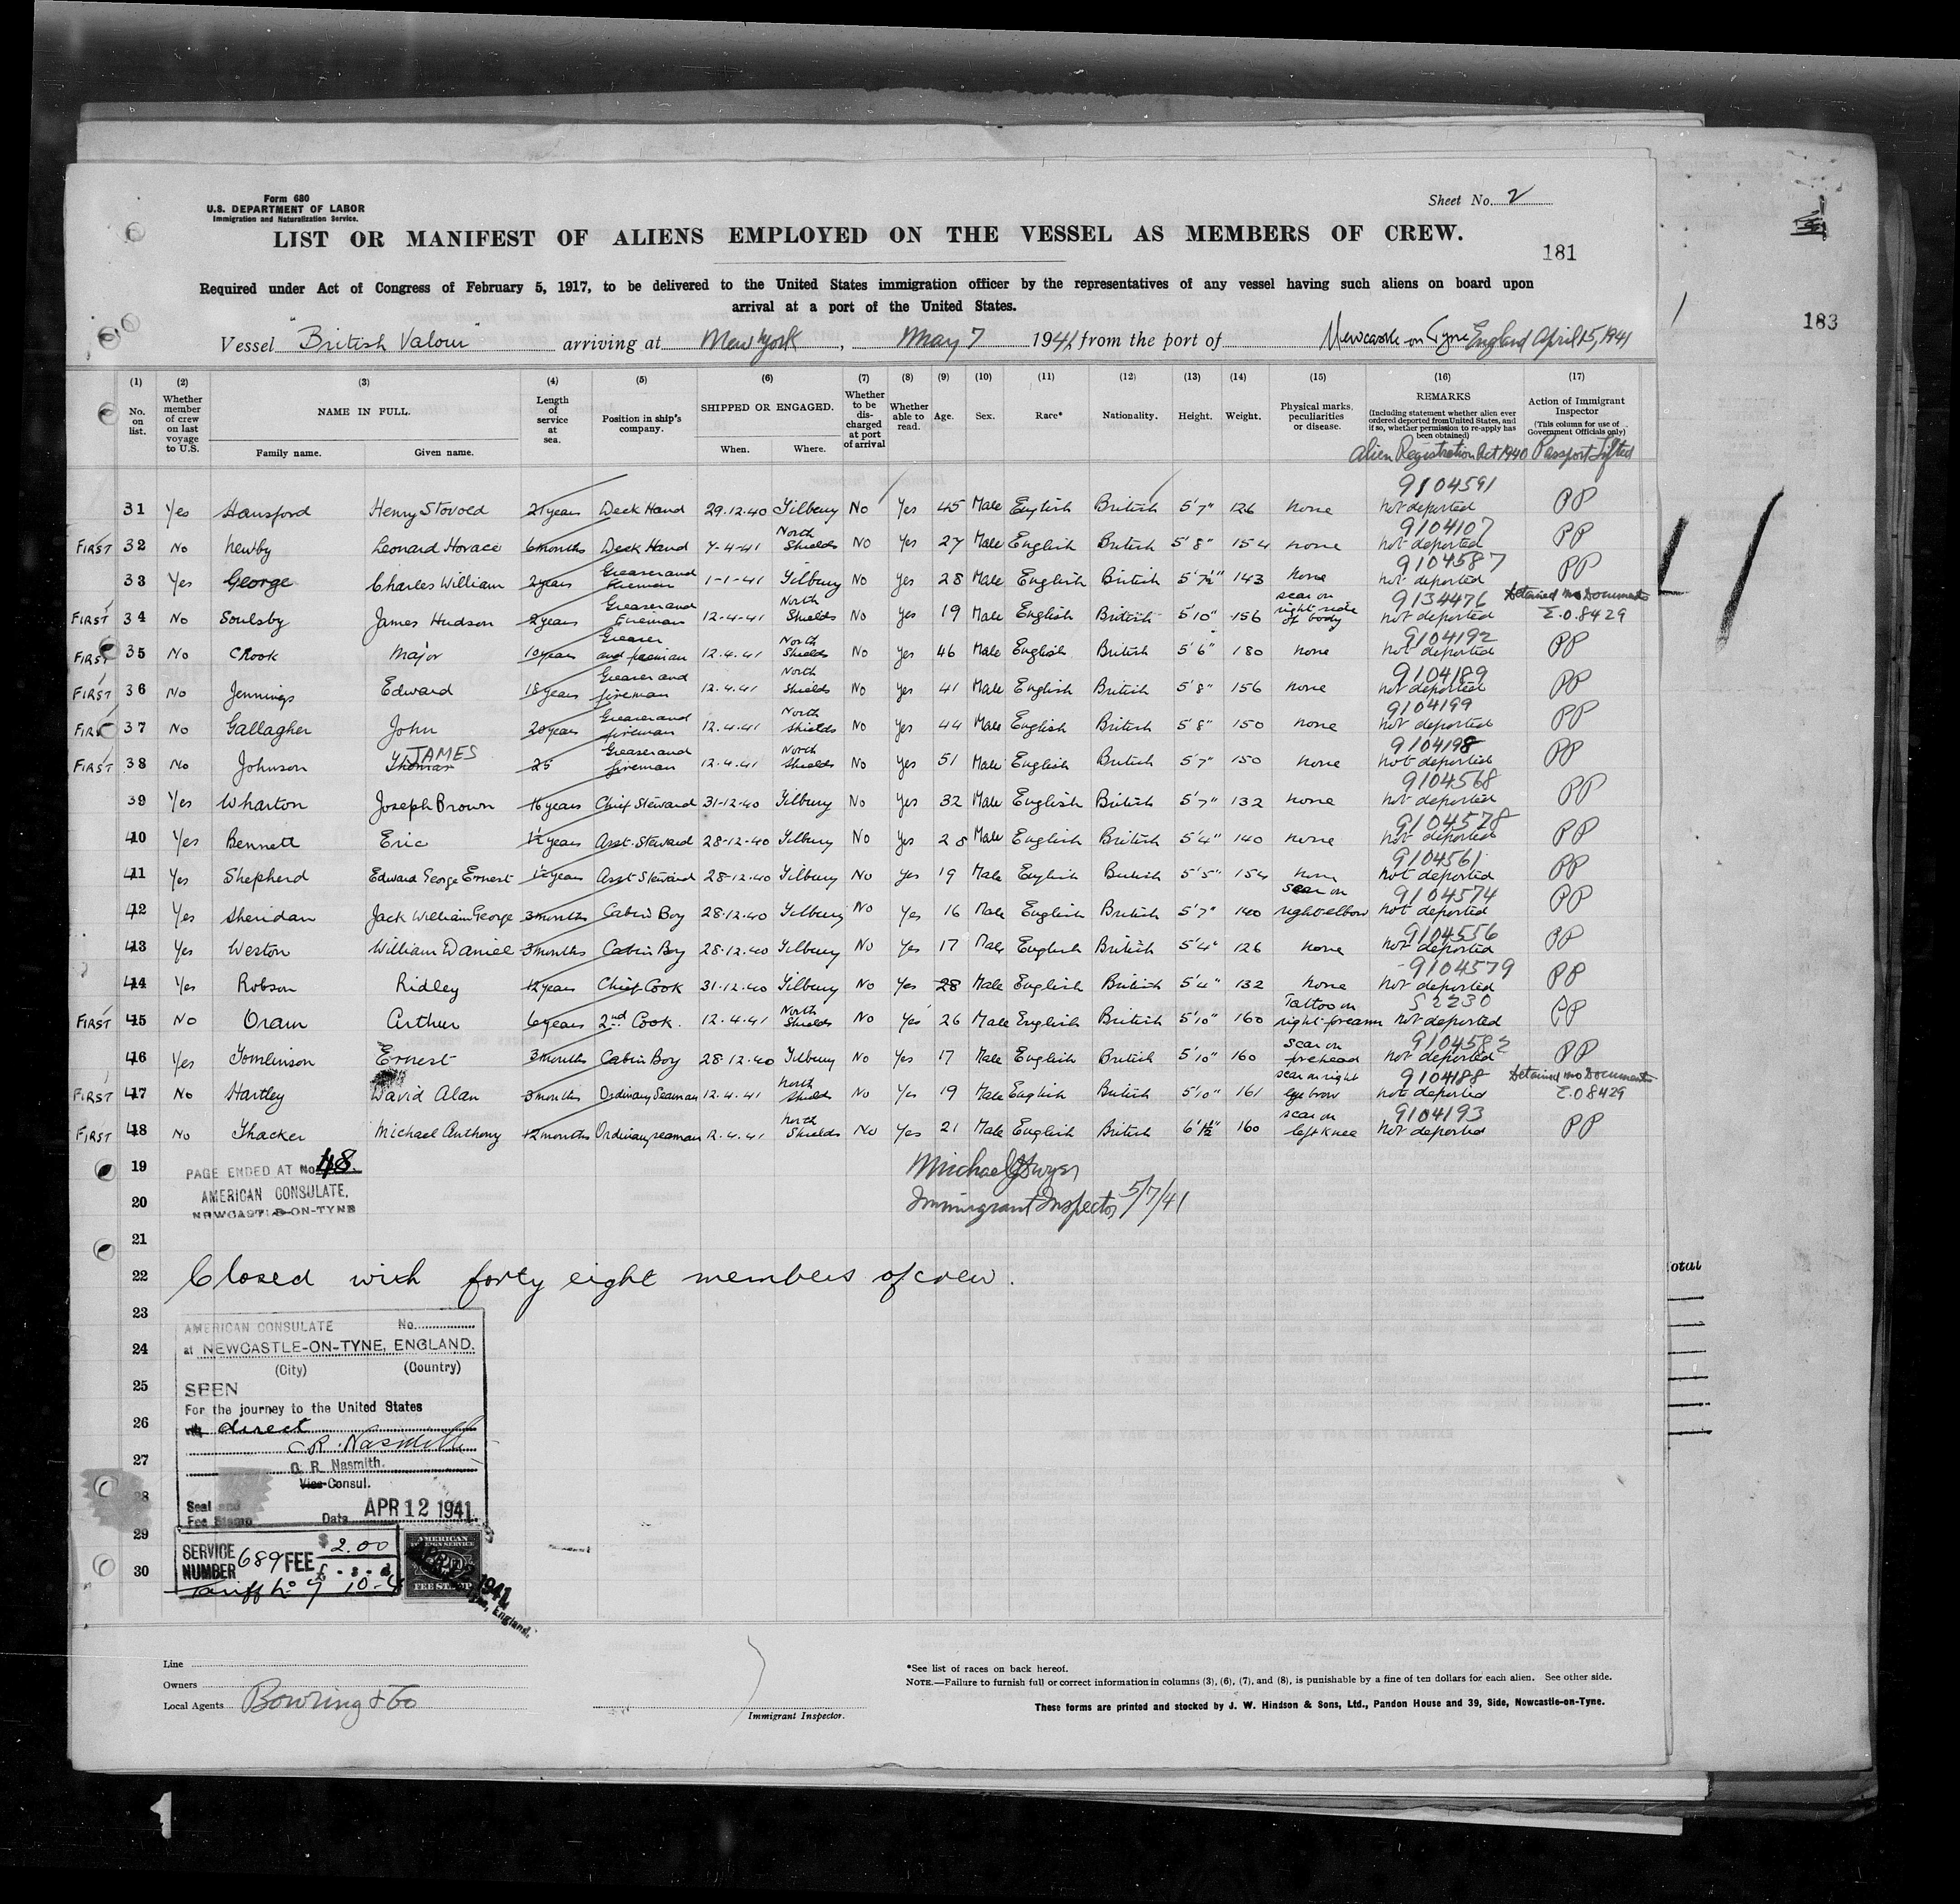 Form 680
U.S. DEPARTMENT OF LABOR
Immigration and Naturalization Service.
Sheet No. 2
LIST OR MANIFEST OF ALIENS EMPLOYED ON THE VESSEL AS MEMBERS OF CREW.
181
183
Required under Act of Congress of February 5, 1917, to be delivered to the United States immigration officer by the representatives of any vessel having such aliens on board upon
arrival at a port of the United States.
Vessel "British Valour" arriving at New York, May 7 1941 from the port of Newcastle on Tyne England April 15, 1941
(1) (2) (3) (4) (5) (6) (7) (8) (9) (10) (11) (12) (13) (14) (15) (16) (17)
No. on list.
Whether member of crew on last voyage to U.S.
NAME IN FULL.
Family name. Given name.
Length of service at sea.
Position in ship's company.
SHIPPED OR ENGAGED.
When. Where.
Whether to be discharged at port of arrival
Whether able to read.
Age.
Sex.
Race*
Nationality.
Height.
Weight.
Physical marks, peculiarities or disease.
REMARKS
(Including statement whether alien ever ordered deported from United States, and if so, whether permission to re-apply has been obtained)
Alien Registration Act 1940
Action of Immigrant Inspector
(This column for use of Government Officials only)
Passport Lifted
31 Yes Hansford Henry Stovold 21 years Deck Hand 29.12.40 Tilbury No Yes 45 Male English British 5'7" 126 none 9104591 not deported PP
FIRST 32 No Newby Leonard Horace 6 months Deck Hand 7-4-41 North Shields No Yes 27 Male English British 5'8" 154 none 9104107 not deported PP
33 Yes George Charles William 2 years Greaser and Fireman 1-1-41 Tilbury No Yes 28 Male English British 5'7½" 143 None 9104587 not deported PP
FIRST 34 No Soulsby James Hudson 2 years Greaser and Fireman 12-4-41 North Shields No Yes 19 Male English British 5'10" 156 scar on right side of body 9134476 not deported Detained no Documents E.O. 8429
FIRST 35 No Crook Major 10 years Greaser and fireman 12.4.41 North Shields No Yes 46 Male English British 5'6" 180 none 9104192 not deported PP
FIRST 36 No Jennings Edward 18 years Greaser and fireman 12.4.41 North Shields No Yes 41 Male English British 5'8" 156 none 9104189 not deported PP
FIRST 37 No Gallagher John 20 years Greaser and fireman 12.4.41 North Shields No Yes 44 Male English British 5'8" 150 none 9104199 not deported PP
FIRST 38 No Johnson Thomas JAMES 25 Greaser and fireman 12.4.41 North Shields No Yes 51 Male English British 5'7" 150 none 9104198 not deported PP
39 Yes Wharton Joseph Brown 16 years Chief Steward 31-12-40 Tilbury No Yes 32 Male English British 5'7" 132 none 9104568 not deported PP
40 Yes Bennett Eric 1½ years Asst. Steward 28-12-40 Tilbury No Yes 28 Male English British 5'4" 140 none 9104578 not deported PP
41 Yes Shepherd Edward George Ernest 1½ years Asst Steward 28-12-40 Tilbury No Yes 19 Male English British 5'5" 154 none 9104561 not deported PP
42 Yes Sheridan Jack William George 3 months Cabin Boy 28.12.40 Tilbury No Yes 16 Male English British 5'7" 140 scar on right elbow 9104574 not deported PP
43 Yes Weston William Daniel 3 months Cabin Boy 28.12.40 Tilbury No Yes 17 Male English British 5'4" 126 none 9104556 not deported PP
44 Yes Robson Ridley 12 years Chief Cook 31-12.40 Tilbury No Yes 28 Male English British 5'4" 132 none 9104579 not deported PP
FIRST 45 No Oram Arthur 6 years 2nd Cook. 12.4.41 North Shields No Yes 26 Male English British 5'10" 160 Tattoo on right forearm 52230 not deported PP
46 Yes Tomlinson Ernest 3 months Cabin Boy 28.12.40 Tilbury No Yes 17 Male English British 5'10" 160 scar on forehead 9104582 not deported PP
FIRST 47 No Hartley David Alan 3 months Ordinary Seaman 12.4.41 North Shields No Yes 19 Male English British 5'10" 161 scar on right eyebrow 9104188 not deported Detained no Documents E.O 8429
FIRST 48 No Thacker Michael Anthony 12 months Ordinary seaman 12.4.41 North Shields No Yes 21 Male English British 6'1½" 160 scar on left knee 9104193 not deported PP
19
PAGE ENDED AT No. 48.
AMERICAN CONSULATE,
NEWCASTLE-ON-TYNE
20
Michael J Dwyer
Immigrant Inspector 5/7/41
21
22 Closed with forty eight members of crew.
23
24
25
26
27
28
29
30
AMERICAN CONSULATE No.
at NEWCASTLE-ON-TYNE, ENGLAND.
(City) (Country)
SEEN
For the journey to the United States
via direct
C.R. Nasmith
C. R. Nasmith.
Vice-Consul.
Seal and
Fee Stamp Date APR 12 1941
SERVICE NUMBER 689 FEE $2.00
£ - s - d
Tariff No 7 10-4
AMERICAN FOREIGN SERVICE
FEE STAMP
1941
England.
otal
Line
Owners
Local Agents Bowring & Co
Immigrant Inspector.
*See list of races on back hereof.
NOTE.—Failure to furnish full or correct information in columns (3), (6), (7), and (8), is punishable by a fine of ten dollars for each alien. See other side.
These forms are printed and stocked by J. W. Hindson & Sons, Ltd., Pandon House and 39, Side, Newcastle-on-Tyne.
1